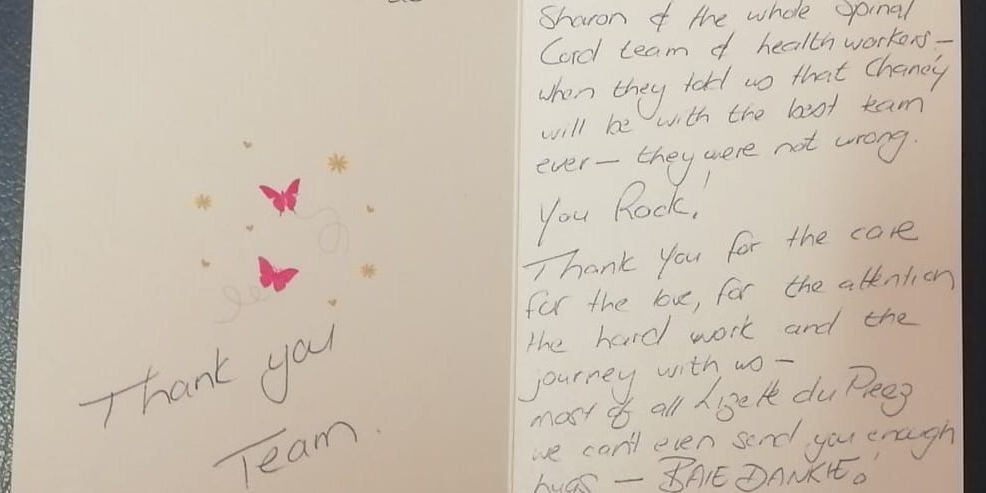 Thank you
Team.
Sharon & the whole Spinal
Cord team & health workers –
when they told us that Chaney
will be with the best team
ever – they were not wrong.
You Rock!
Thank you for the care
for the love, for the attention
the hard work and the
journey with us –
most of all Lizette du Preez
we can't even send you enough
hugs – BAIE DANKIE!